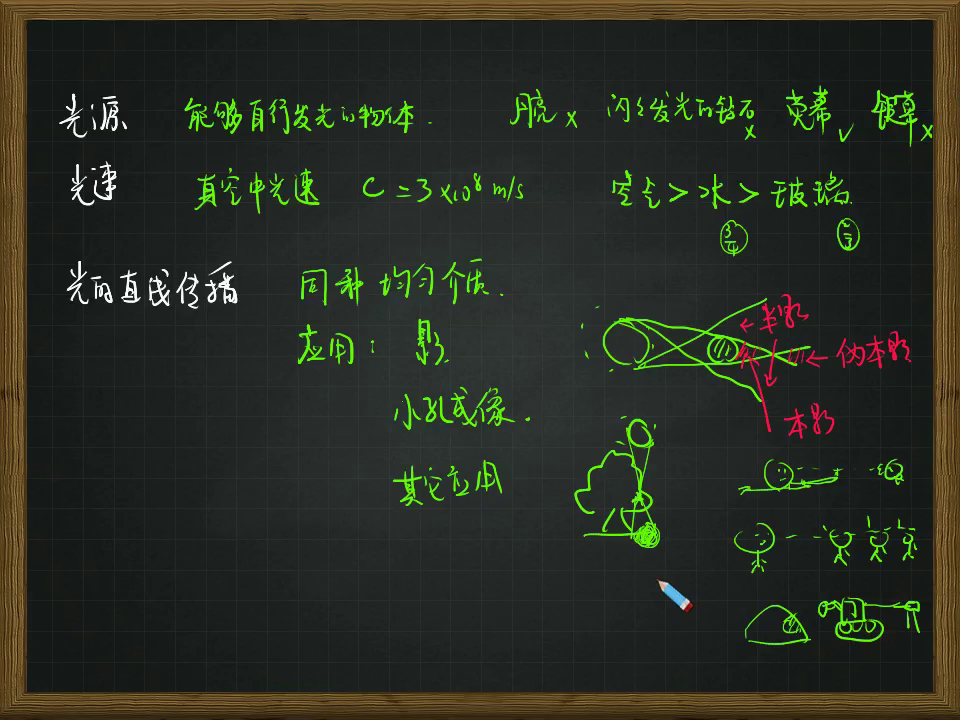 光源 能够自行发光的物体. 月亮 x 闪々发光的钻石 x 荧幕 ✓ 银幕 x
光速 真空中光速 C = 3×10⁸ m/s 空气 > 水 > 玻璃.
3/4 2/3
光的直线传播 同种 均匀介质.
应用: 影.
←半影
←伪本影
本影
小孔成像.
其它应用